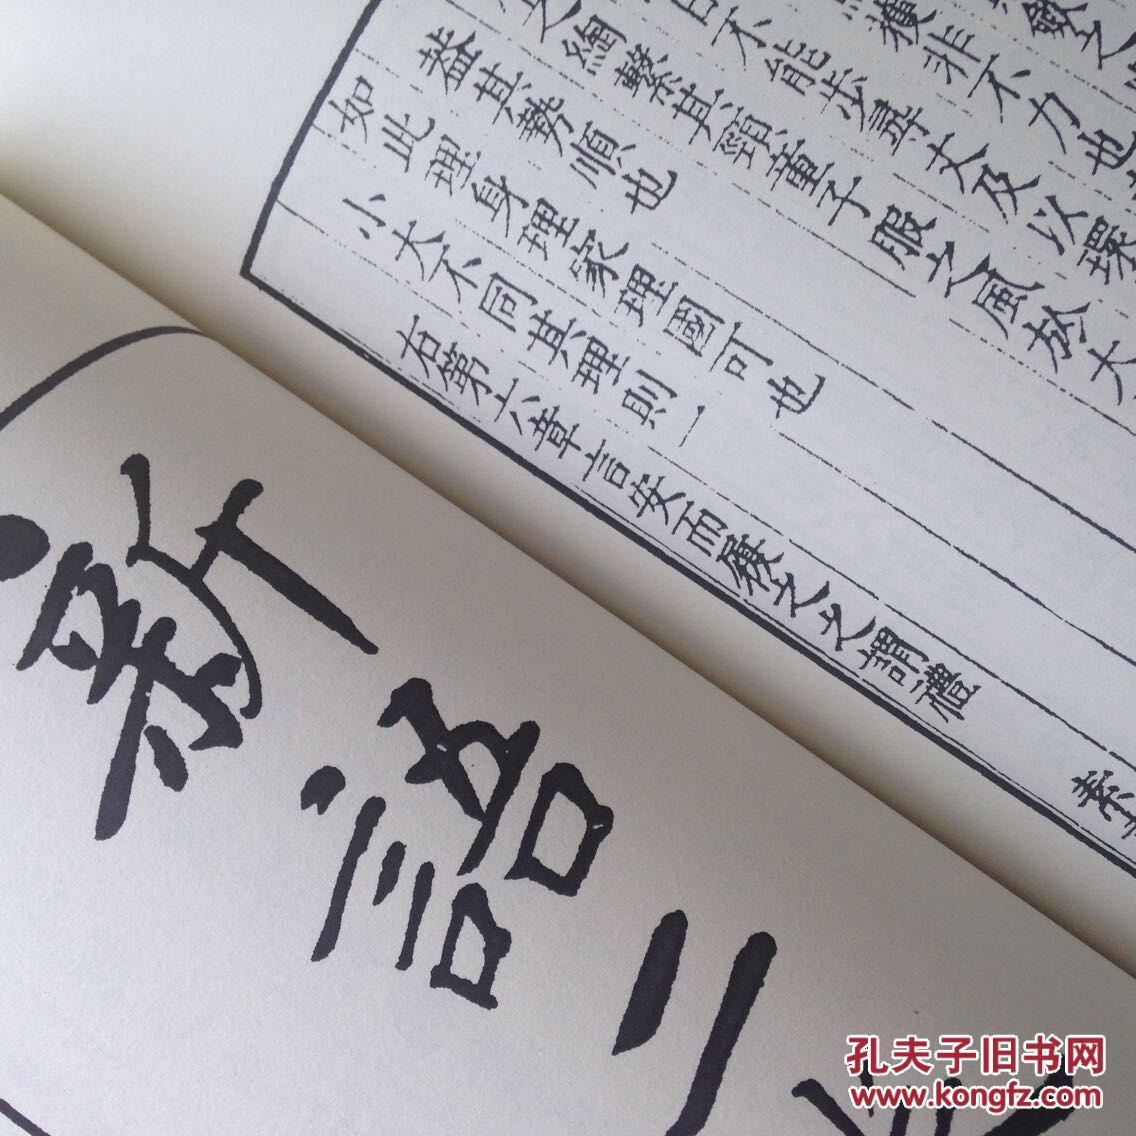 斂之
獲非不力也
日不能步尋丈及以環
之綯繫其頸童子服之風於大
蓋其勢順也
如此理身理家理國可也
小大不同其理則一
右第六章言安而履之之謂禮
素
新語二
孔夫子旧书网
www.kongfz.com